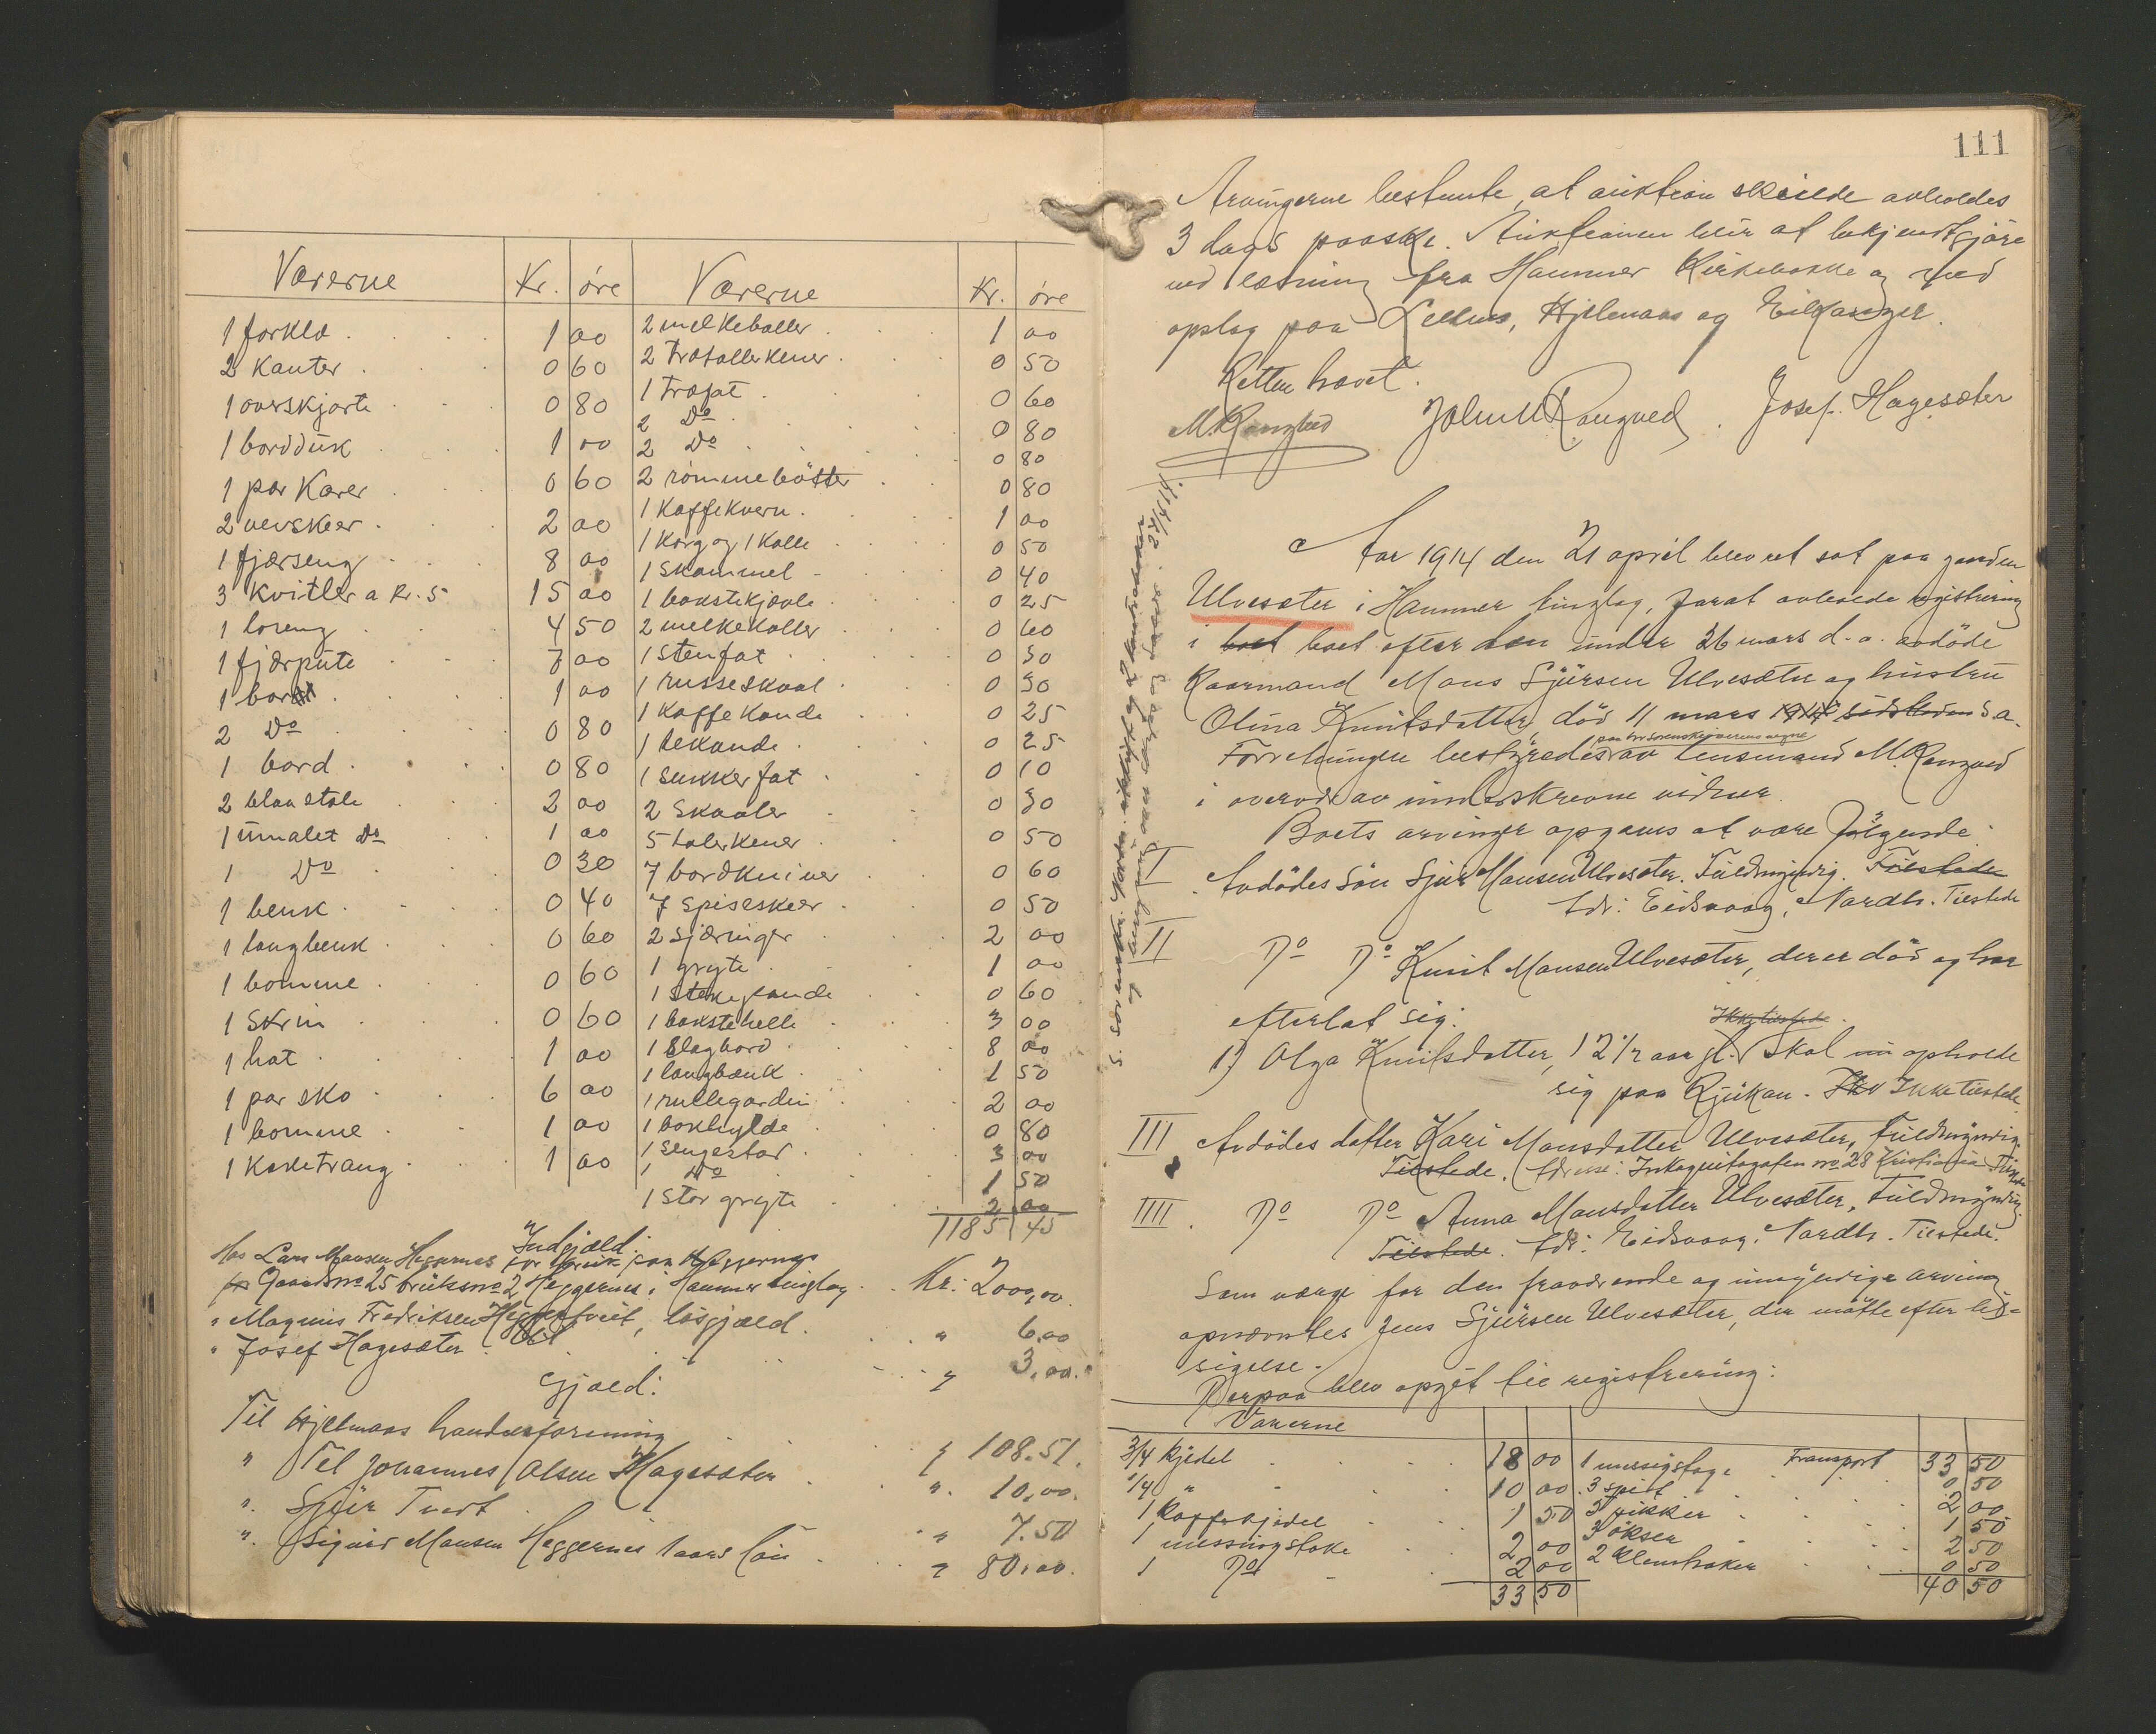 Varerne Kr. øre
1 forklæ 1 00
2 Kanter 0 60
1 overskjorte 0 80
1 bordduk 1 00
1 par Karer 0 60
2 vevskeer 2 00
1 fjærseng 8 00
3 Kvitler a kr. 5 15 00
1 loreng 4 50
1 fjærpute 7 00
1 bord 1 00
2 Do 0 80
1 bord 0 80
2 blaa stole 2 00
1 umalet Do 1 00
1 Do 0 30
1 benk 0 40
1 langbenk 0 60
1 bomme 0 60
1 Skrin 0 60
1 hat 1 00
1 par sko 6 00
1 bomme 1 00
1 Kaketraug 1 00
Varerne Kr. øre
2 melkeboller 1 00
2 trætallerkener 0 50
1 træfat 0 60
2 Do 0 80
2 Do 0 80
2 rømmebøtter 0 80
1 Kaffekvern 1 00
1 Korg og 1 Kolle 0 50
1 Skammel 0 40
1 bakstekjævle 0 25
2 melkekoller 0 60
1 Stenfat 0 30
1 russeskaal 0 30
1 Kaffekande 0 25
1 tekande 0 25
1 Sukkerfat 0 10
2 Skaaler 0 30
5 talerkener 0 50
7 bordkniver 0 60
7 Spiseskeer 0 50
2 Sjæringer 2 00
1 gryte 1 00
1 Stekepande 0 60
1 bakstehelle 3 00
1 Slagbord 8 00
1 langbænk 1 50
1 rullegardin 2 00
1 bokhylde 0 80
1 Sengestad 3 00
1 Do 1 50
1 Stor gryte 2 00
1185 45
Indgjæld:
Hos Lars Mansen Heggernes for bruk paa Heggernes
Gaardsno 25 bruksno 2 Heggernes i Hammer tinglag Kr: 2000,00
" Magnus Fredriksen Heggertveit, løsgjæld " 6,00
" Josef Hagesæter " 3,00.
Gjæld:
Til Hjelmaas handversforening " 108.51.
" Til Johannes Olsen Hagesæter " 10,00.
" Sjur Tveit " 7.50
" Sigurd Mansen Heggernes 1 aars løn " 80,00.
111
Arvingerne bestemte, at auktion skulde avholdes
3 dags paaske. Auktionen blir at bekjendtgjøre
ved læsning fra Hammer Kirkebakke og ved
opslag paa Hjelmaas og Eikanger.
Retten hævet.
M. Rangved John M Rangved. Josef. Hagesæter
Aar 1914 den 21 april blev ret sat paa gaarden
Ulvesæter i Hammer tinglag, forat avholde registrering
i boet boet efter den under 26 mars d.a. avdøde
Kaarmand Mons Sjursen Ulvesæter og hustru
Olina Knutsdatter, død 11 mars 1914 sidstleden s.a.
paa hr Sorenskriverens vegne
Forretningen bestyredes av lensmand M. Rangved
i overvær av underskrevne vidner.
Boets arvinger opgaves at være følgende:
I Avdødes søn Sjur Monsen Ulvesæter. Fuldmyndig. Tilstede
Adr: Eidsvaag, Nordh. Tilstede
II Do Do Knut Monsen Ulvesæter, der er død og har
efterlat sig:
Ikke tilstede.
1) Olga Knutsdatter, 12 1/2 aar gl. Skal nu opholde
sig paa Rjukan. Ikke tilstede
III Avdødes datter Kari Monsdatter Ulvesæter, Fuldmyndig.
Tilstede. Adresse: Inkognitogaten no 28 Kristiania Tilstede
IIII. Do Do Anna Monsdatter Ulvesæter, Fuldmyndig.
Tilstede. Adr: Eidsvaag. Nordh. Tilstede.
Som værge for den fraværende og umyndige arving
opnævntes Jens Sjursen Ulvesæter, der møtte efter til=
sigelse.
Derpaa blev opgit til registrering:
Varerne
3/4 Kjedel 18 00
1/4 " 10 00
1 Kaffekjedel 1 50
1 messingstake 2 00
1 Do 2 00
33 50
Transport 33 50
1 messigstage 0 50
3 spit 2 00
3 vikker 1 50
3 økser 2 50
2 Klemhaker 0 50
40 50